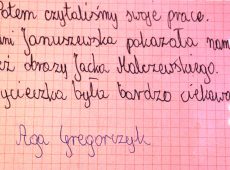 otem czytaliśmy swoje prace.
ani Januszewska pokazała nam
eż obrazy Jacka Malczewskiego.
ycieczka była bardzo ciekawa
Aga Gregorczyk